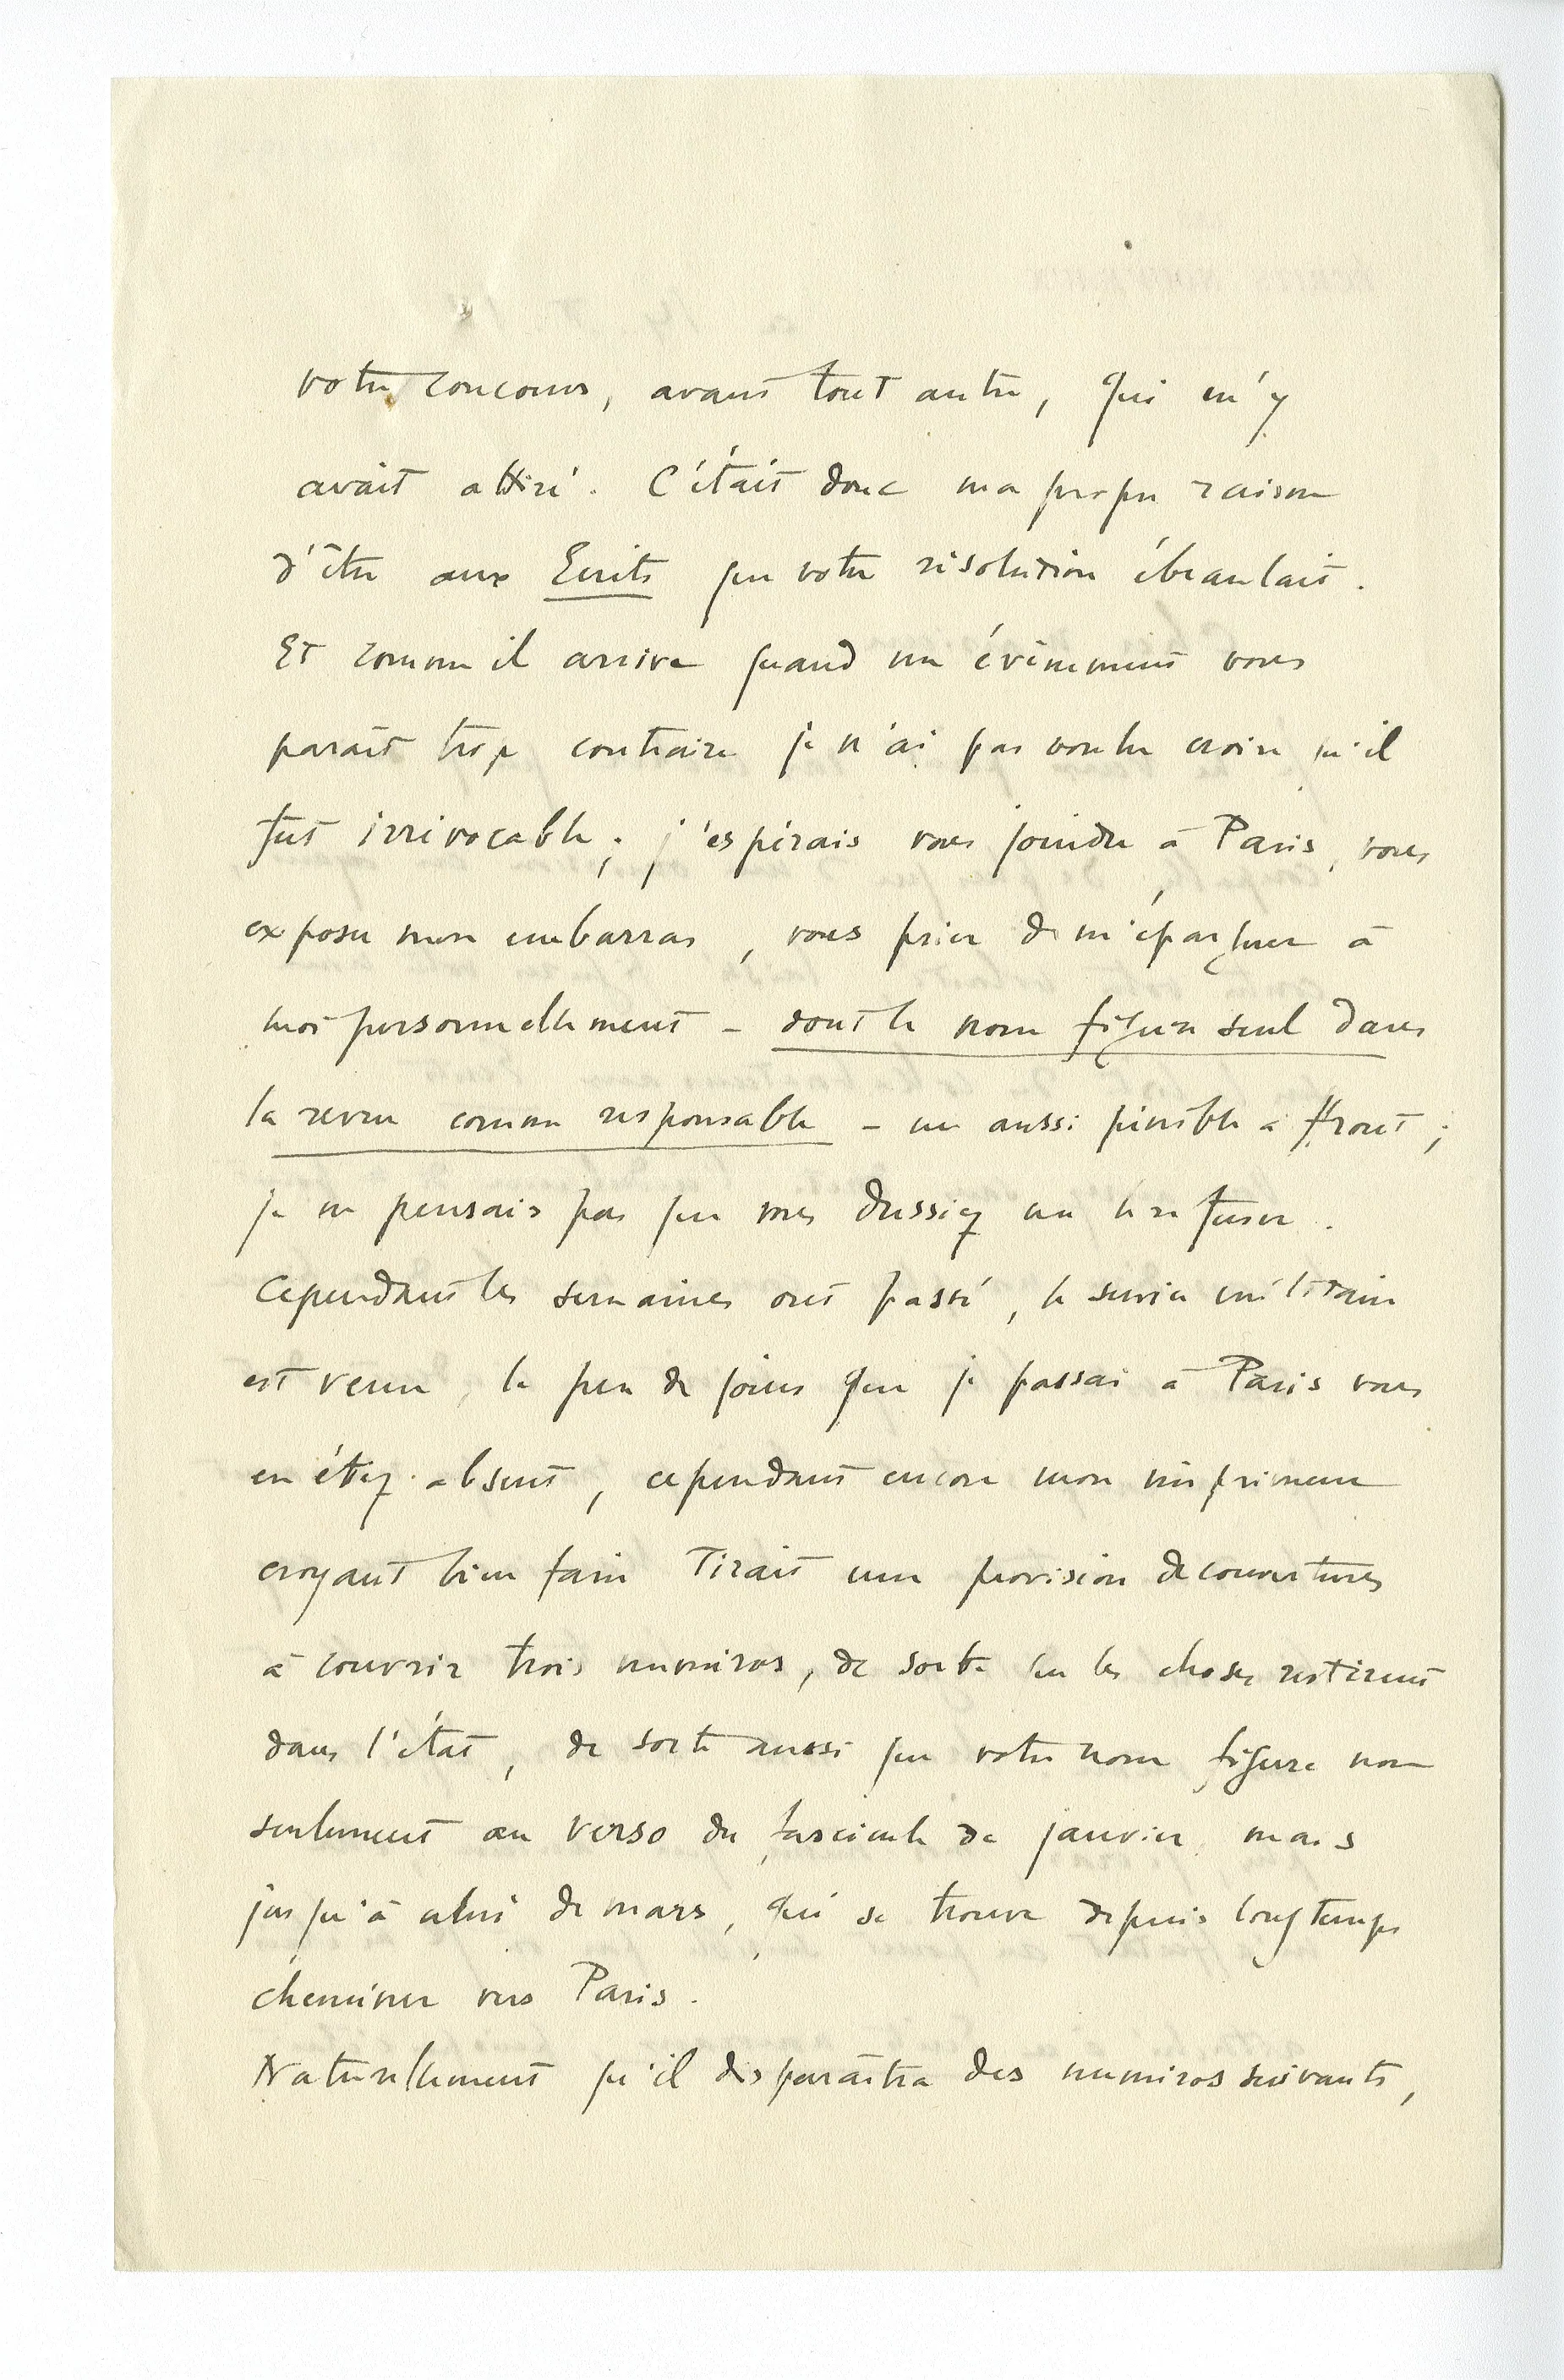 votre concours, avant tout autre, qui m'y
avait attiré. C'était donc ma propre raison
d'être aux Ecrits que votre résolution ébranlait.
Et comme il arrive quand un évènement vous
parait trop contraire je n'ai pas voulu croire qu'il
fut irrévocable ; j'espérais vous joindre à Paris, vous
exposer mon embarras, vous prier de m'épargner à
moi personnellement – dont le nom figure seul dans
la revue comme responsable – un aussi pénible affront ;
je ne pensais pas que vous dussiez me le refuser.
Cependant les semaines ont passé, le service militaire
est venu, le peu de jours que je passai à Paris vous
en étiez absent, cependant encore mon imprimeur
croyant bien faire tirait une provision de couvertures
à couvrir trois numéros, de sorte que les choses restèrent
dans l'état, de sorte aussi que votre nom figure non
seulement au verso du fascicule de janvier mais
jusqu'à celui de mars, qui se trouve depuis longtemps
cheminer vers Paris.
Naturellement qu'il disparaîtra des numéros suivants,